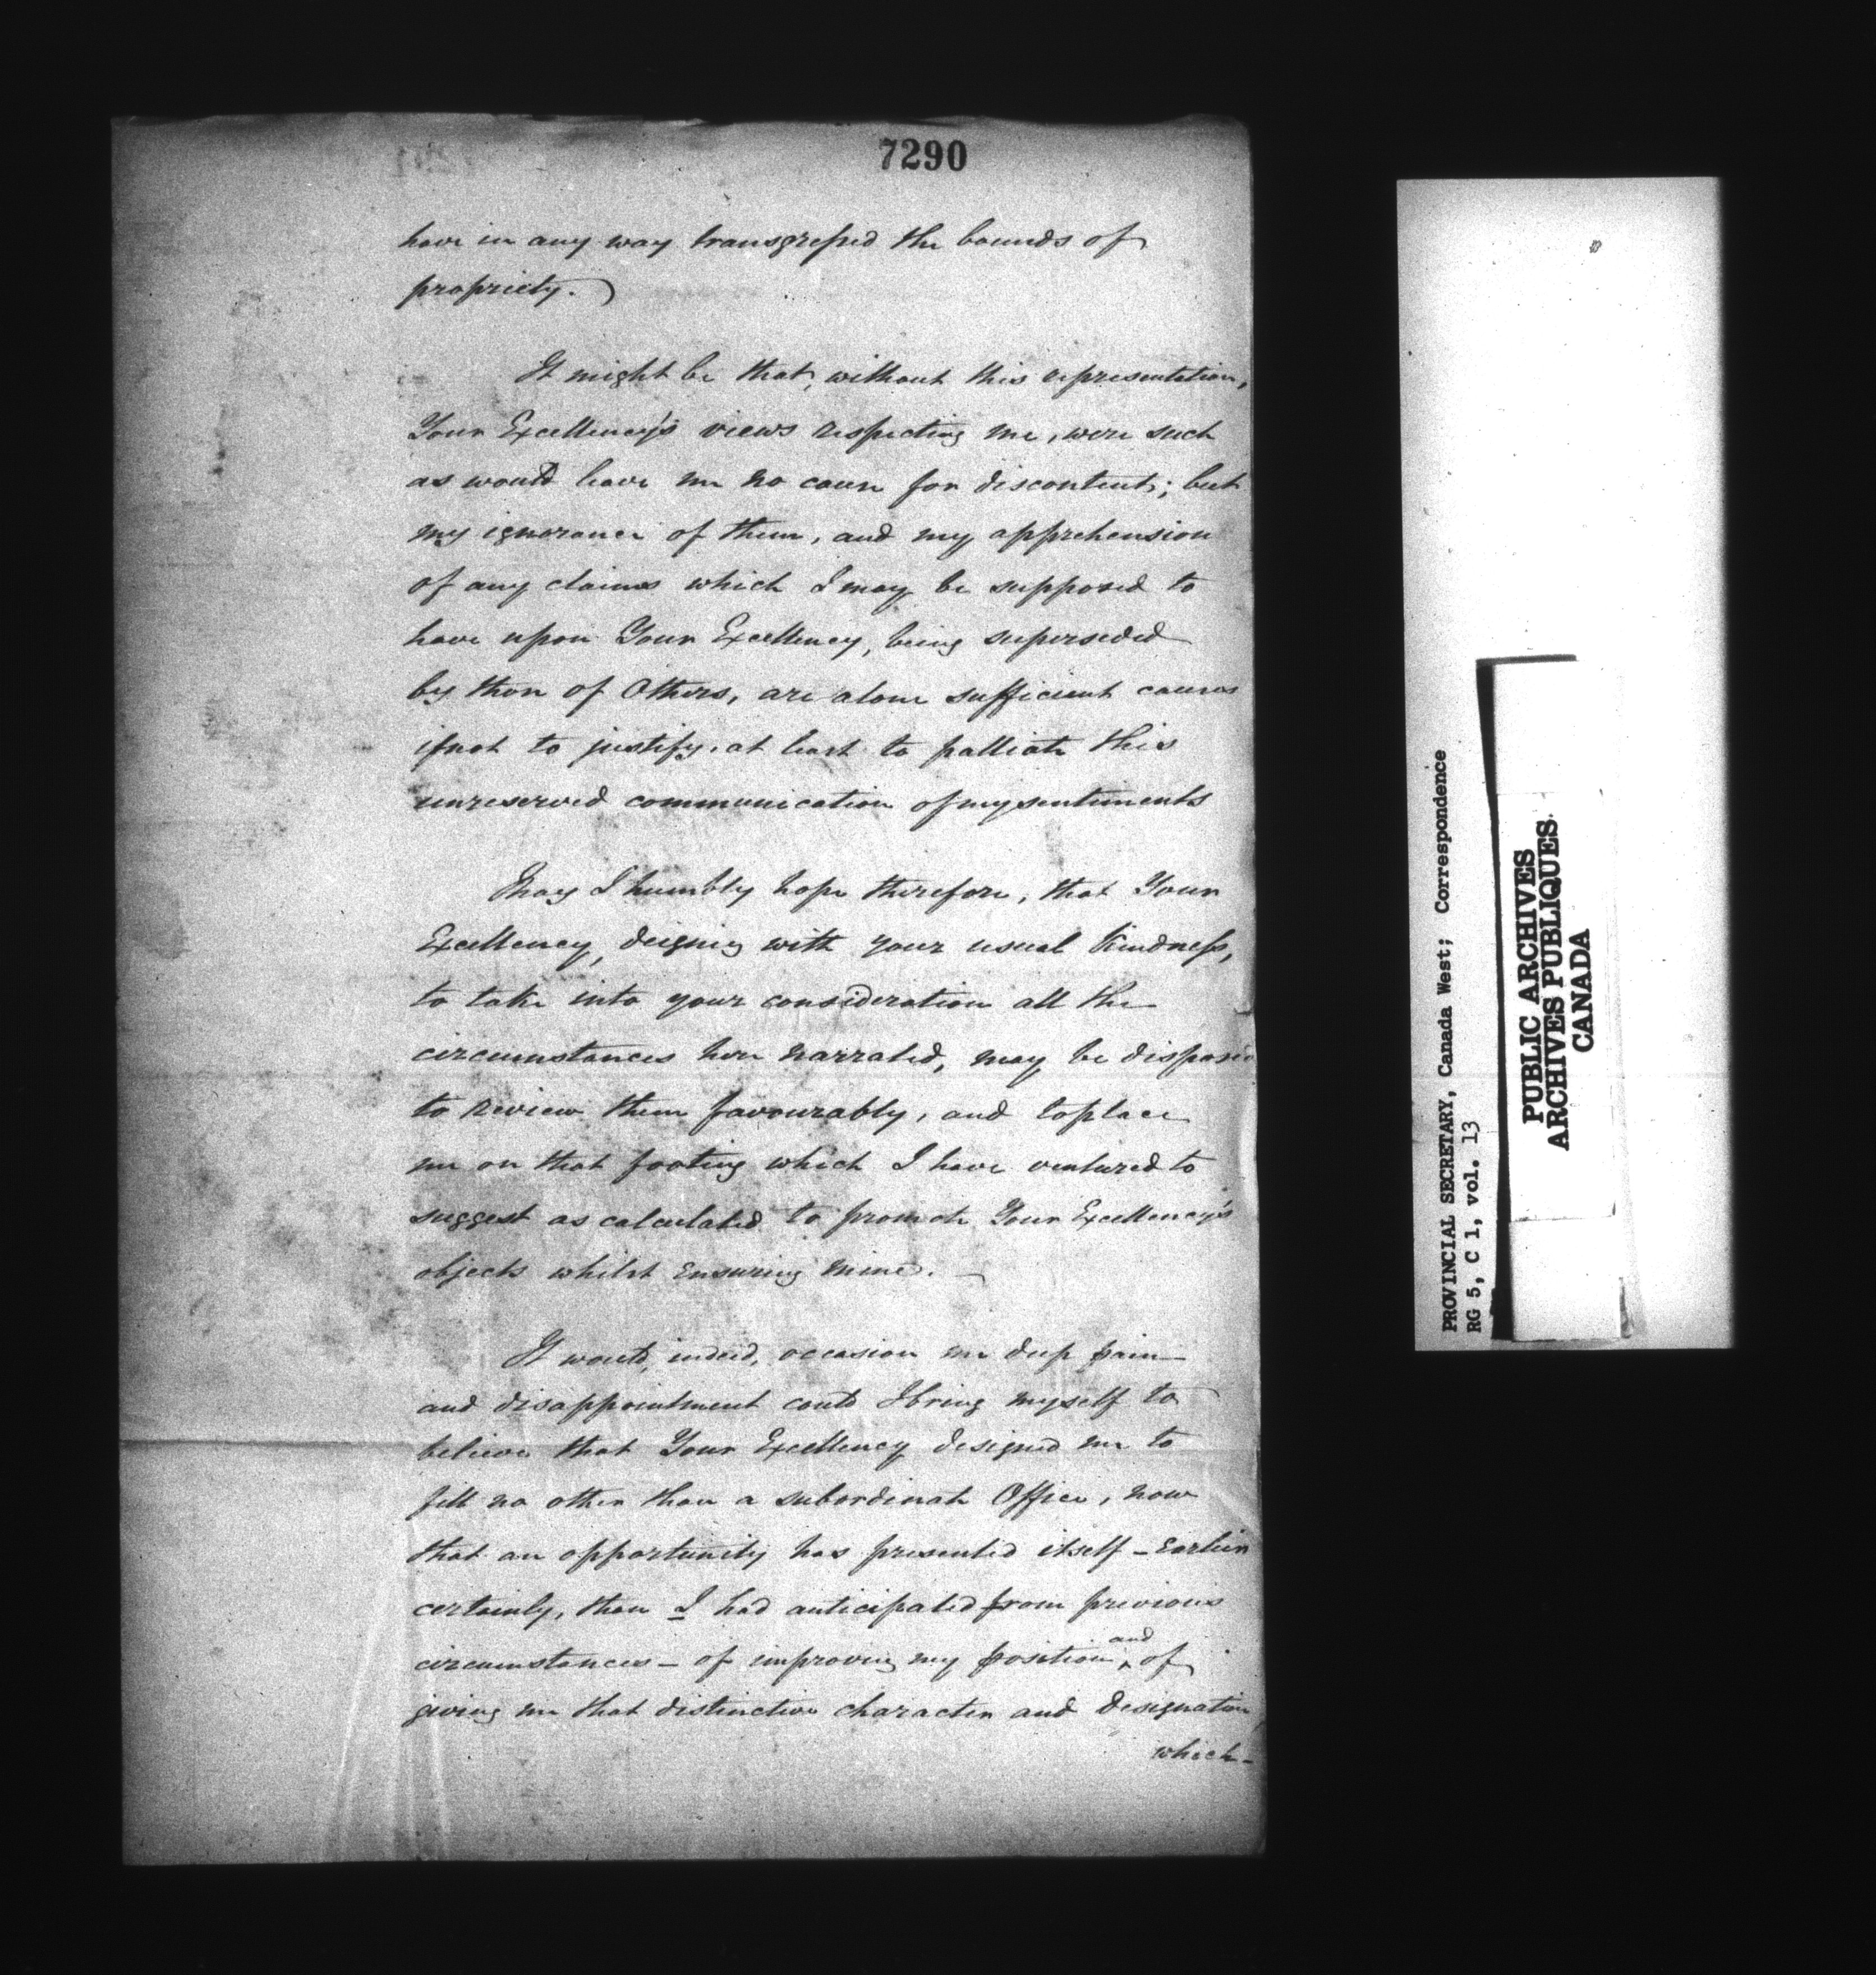 7290
have in any way transgressed the bounds of
propriety.)
It might be that, without this representation,
Your Excellency's views respecting me, were such
as would leave me no cause for discontent; but
my ignorance of them, and my apprehension
of any claims which I may be supposed to
have upon Your Excellency, being superseded
by those of Others, are alone sufficient causes
if not to justify, at least to palliate this
unreserved communication of my sentiments
May I humbly hope therefore, that Your
Excellency, deigning with your usual Kindness,
to take into your consideration all the
circumstances here narrated, may be disposed
to review them favourably, and to place
me on that footing which I have ventured to
suggest as calculated to promote Your Excellency's
objects whilst ensuring mine. —
It would, indeed, occasion me deep pain
and disappointment could I bring myself to
believe that Your Excellency designed me to
fill no other than a subordinate Office, now
that an opportunity has presented itself – Earlier
certainly, than I had anticipated from previous
circumstances – of improving my position, and of
giving me that distinctive character and designation
which –
PROVINCIAL SECRETARY, Canada West; Correspondence
RG 5, C 1, vol. 13
PUBLIC ARCHIVES
ARCHIVES PUBLIQUES
CANADA